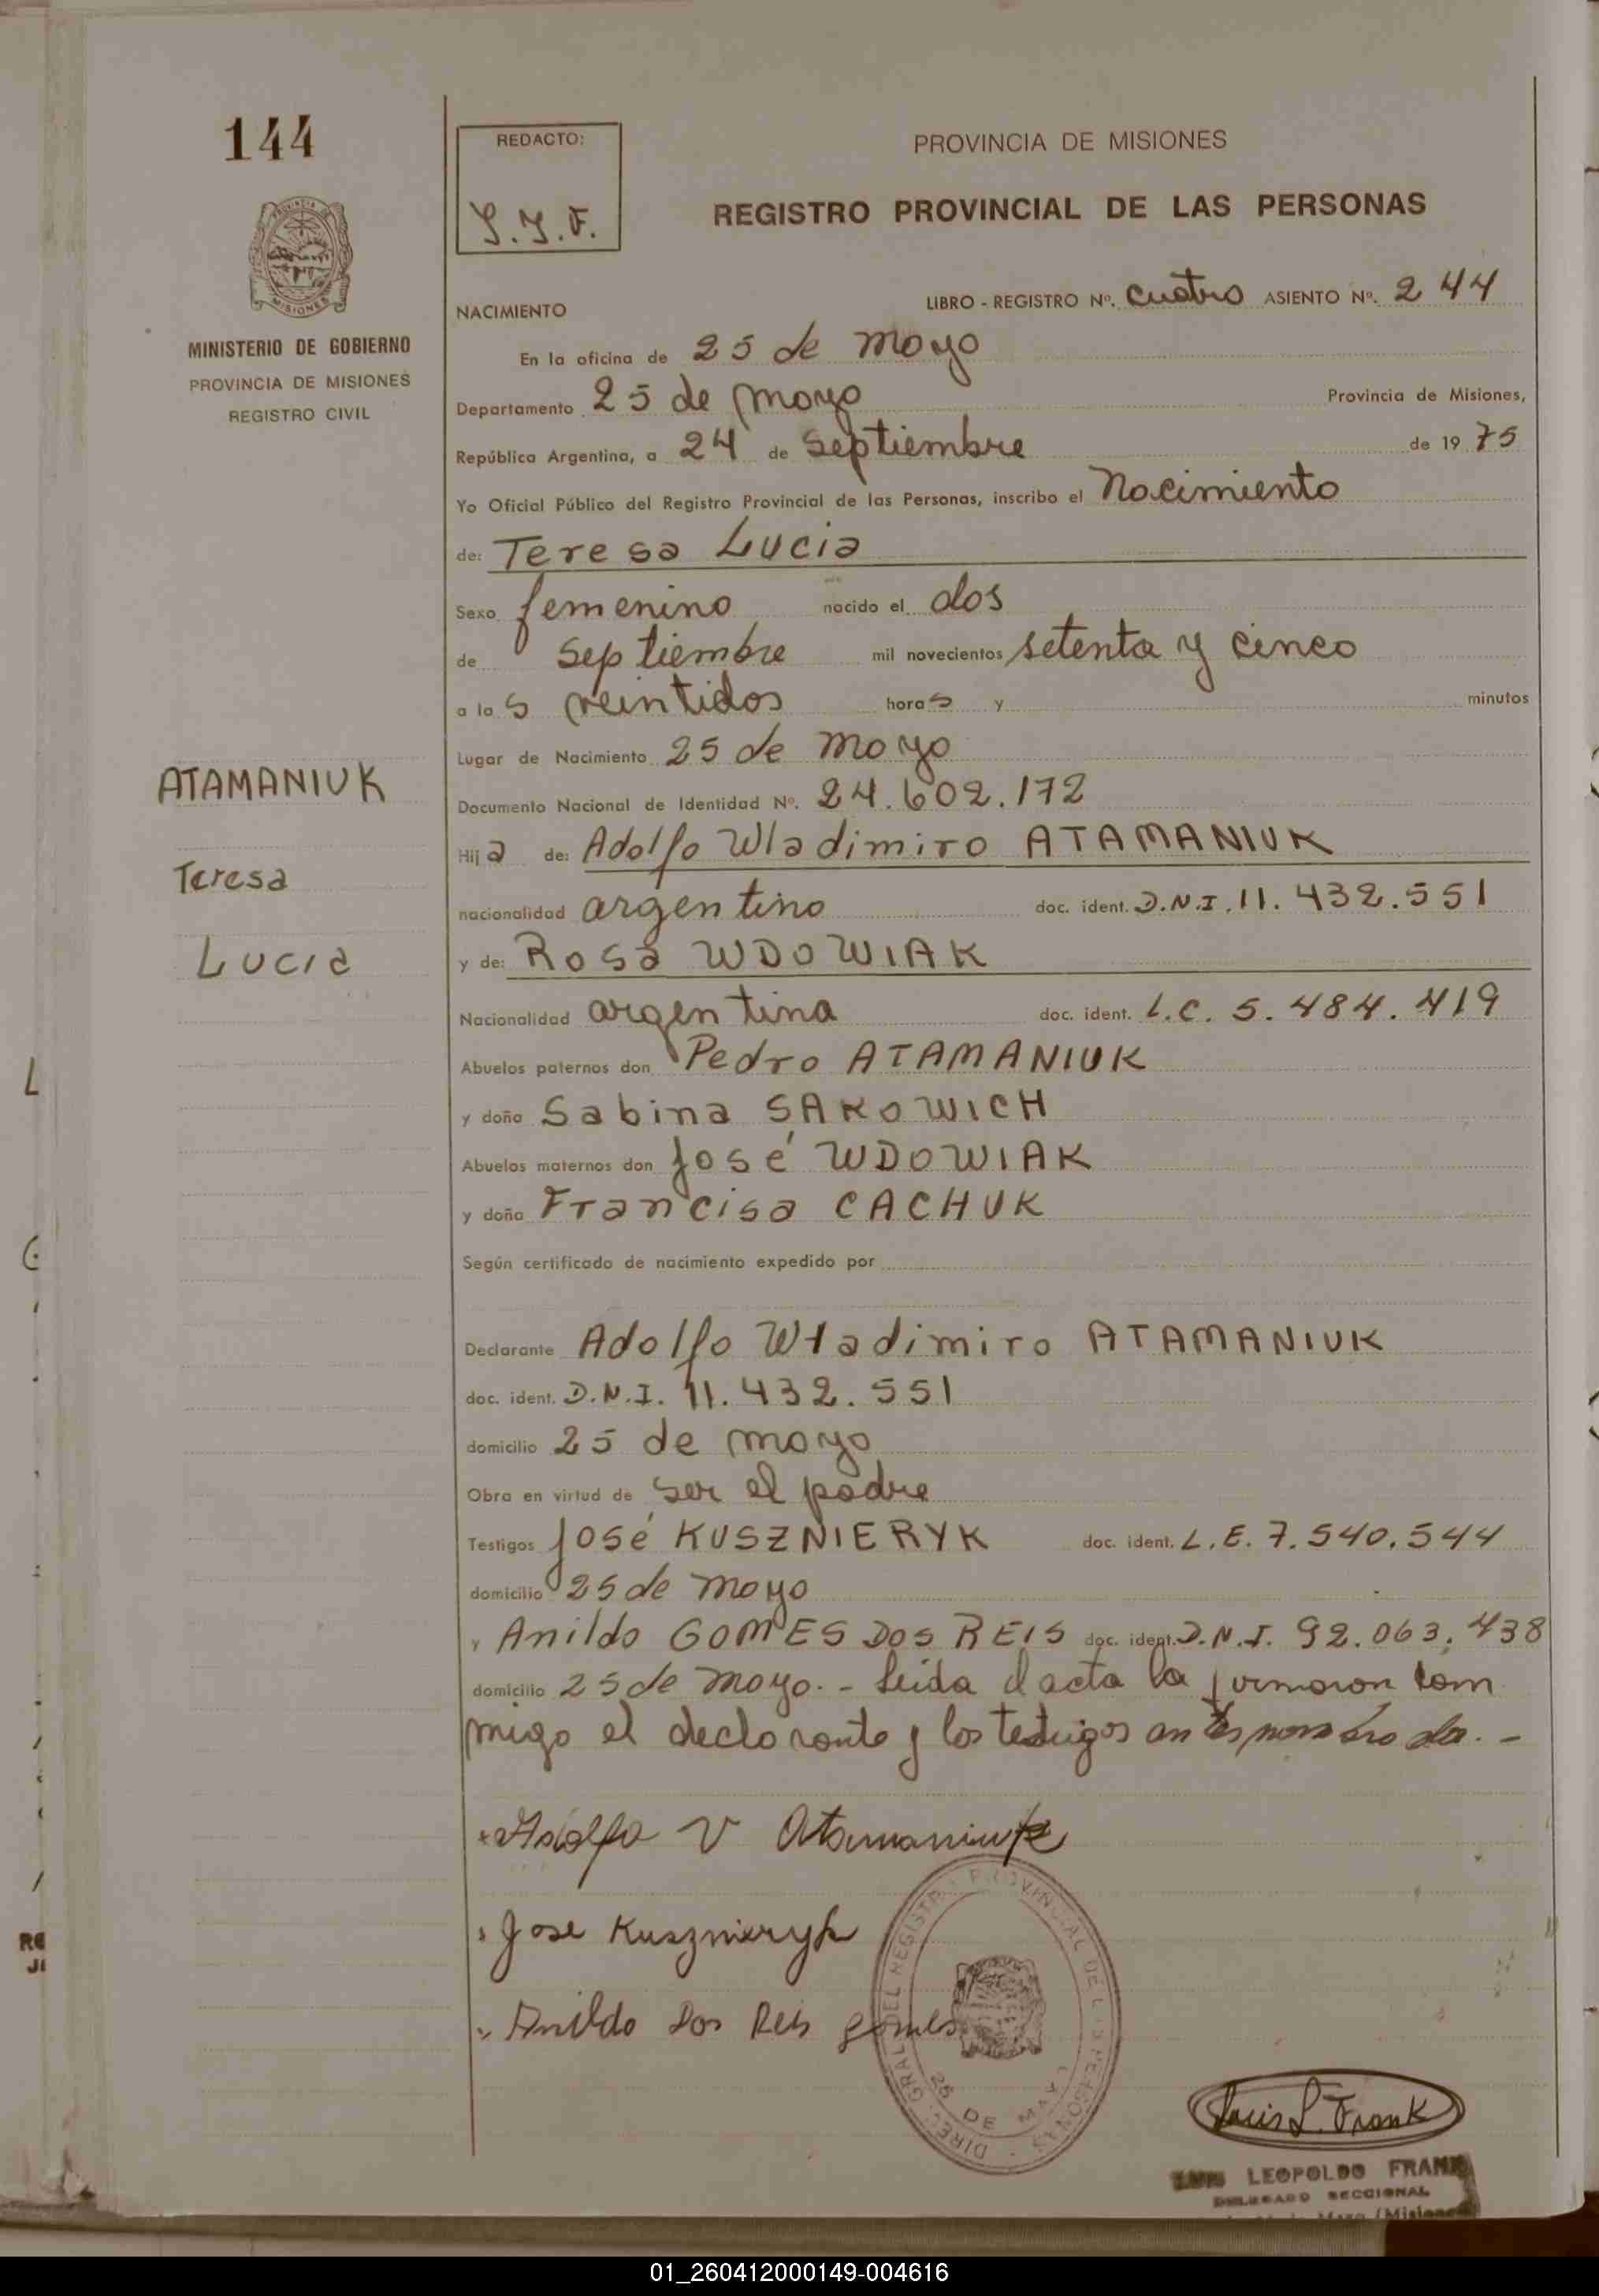 144
REDACTO:
S.J.F.
PROVINCIA DE MISIONES
REGISTRO PROVINCIAL DE LAS PERSONAS
MISIONES
MINISTERIO DE GOBIERNO
PROVINCIA DE MISIONES
REGISTRO CIVIL
NACIMIENTO
LIBRO - REGISTRO Nº. Cuatro ASIENTO Nº. 244
En la oficina de 25 de Mayo
Departamento 25 de mayo Provincia de Misiones,
República Argentina, a 24 de septiembre de 1975
Yo Oficial Público del Registro Provincial de las Personas, inscribo el Nacimiento
de: Teresa Lucia
Sexo femenino nacido el dos
de Septiembre mil novecientos setenta y cinco
a las veintidos horas y minutos
Lugar de Nacimiento 25 de Mayo
Documento Nacional de Identidad Nº. 24.602.172
Hija de: Adolfo Wladimiro ATAMANIUK
nacionalidad argentino doc. ident. D.N.I. 11.432.551
y de: Rosa WDOWIAK
Nacionalidad argentina doc. ident. L.C. 5.484.419
Abuelos paternos don Pedro ATAMANIUK
y doña Sabina SAKOWICH
Abuelos maternos don José WDOWIAK
y doña Francisa CACHUK
Según certificado de nacimiento expedido por
Declarante Adolfo Wladimiro ATAMANIUK
doc. ident. D.N.I. 11.432.551
domicilio 25 de mayo
Obra en virtud de ser el padre
Testigos José KUSZNIERYK doc. ident. L.E. 7.540.544
domicilio 25 de Mayo
y Anildo GOMES DOS REIS doc. ident. D.N.I. 92.063.438
domicilio 25 de Mayo.- Leida el acta la firmaron com
migo el declarante y los testigos antes nombrado.-
ATAMANIUK
Teresa
Lucia
Adolfo V Atamaniuk
Jose Kusznieryk
Anildo Dos Reis gomes
DIREC. GRAL. DEL REGISTRO PROVINCIAL DE LAS PERSONAS
25 DE MAYO
Luis L. Frank
LUIS LEOPOLDO FRANK
DELEGADO SECCIONAL
Mayo (Misiones
01_260412000149-004616